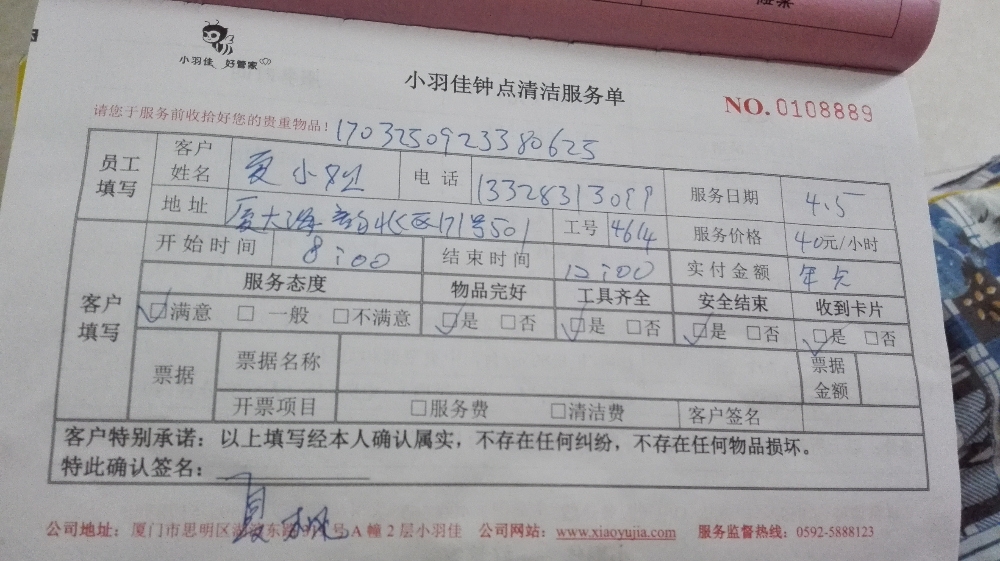 小羽佳 好管家
小羽佳钟点清洁服务单
NO.0108889
请您于服务前收拾好您的贵重物品!
1703250923380625
员工填写 客户姓名 夏小姐 电话 13328313099 服务日期 4.5
地址 厦大海韵北区171号501 工号 4614 服务价格 40元/小时
客户填写 开始时间 8:00 结束时间 12:00 实付金额 年点
服务态度 物品完好 工具齐全 安全结束 收到卡片
☑满意 □一般 □不满意 ☑是 □否 ☑是 □否 ☑是 □否 ☑是 □否
票据 票据名称 票据金额
开票项目 □服务费 □清洁费 客户签名
客户特别承诺:以上填写经本人确认属实,不存在任何纠纷,不存在任何物品损坏。
特此确认签名:
夏
公司地址:厦门市思明区 号A幢2层小羽佳 公司网站:www.xiaoyujia.com 服务监督热线:0592-5888123